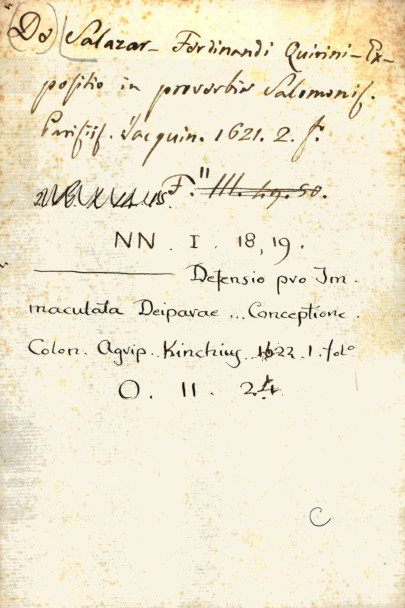 (De) Salazar - Ferdinandi Quirini - Ex-
positio in proverbia Salomonis.
Parisiis. Jacquin. 1621. 2. f.
F." III. 49. 50.
NN. I. 18, 19.
Defensio pro Im-
maculata Deiparae ... Conceptione.
Colon. Agrip. Kinchius 1622. 1. fol°
O. 11. 24
C